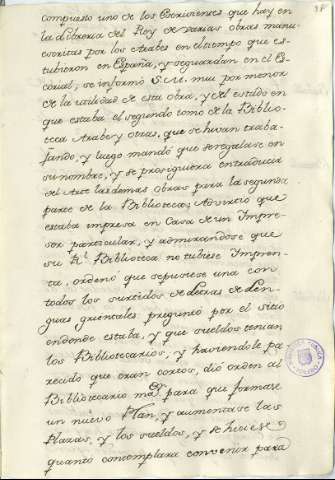 compuesto uno de los Escrivientes que hay en
la Libreria del Rey de varias obras manu
escritas por los Arabes en el tiempo que es
tubieron en España, y se guardan en el Es
corial, se informó S.M. mui por menor
de la utilidad de esta obra, y del estado en
que estaba el segundo tomo de la Biblio
teca Arabe y otras, que se hivan traba
jando, y luego mandó que se regalase en
su nombre, y se prosiguiera en traducir
las demas obras para la segunda
parte de la Biblioteca; Advirtió que
estaba impresa en Casa de un Impre
sor particular, y admirandose que
su Rl. Biblioteca no tubiese Impren
ta, ordenó que se pusiese una con
todos los surtidos de letras de Len
guas orientales preguntó por el sitio
en donde estaba, y que sueldos tenian
los Bibliotecarios, y haviendole pa
recido que eran cortos, dió orden al
Bibliotecario mor. para que formase
un nuevo Plan, y aumentase las
Plazas, y los sueldos, y se hiciese
quanto contemplara convenir para